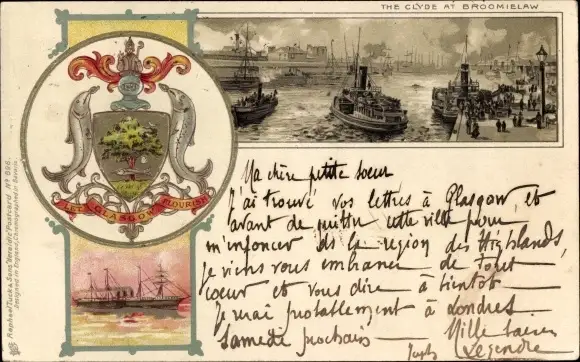 THE CLYDE AT BROOMIELAW
LET GLASGOW FLOURISH
Raphael Tuck & Sons' "Heraldic" Postcard Nº 696.
Designed in England, Chromographed in Bavaria.
Ma chère petite soeur
J'ai trouvé vos lettres à Glasgow, et
avant de quitter cette ville pour
m'enfoncer ds la region des Highlands,
je viens vous embrasser de tout
coeur et vous dire à bientôt
Je irai probablement à Londres
Samedi prochain Mille baisers
Legendre